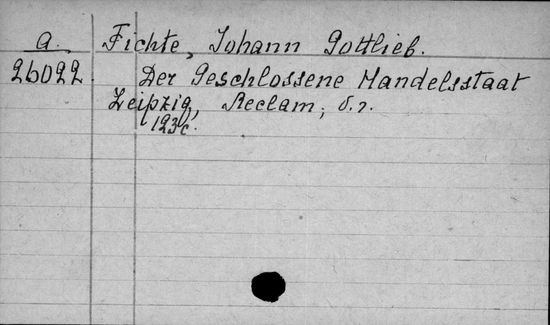 a. Fichte, Johann Gottlieb.
26022. Der Geschlossene Handelsstaat
Leipzig, Reclam, s.r.
123c.